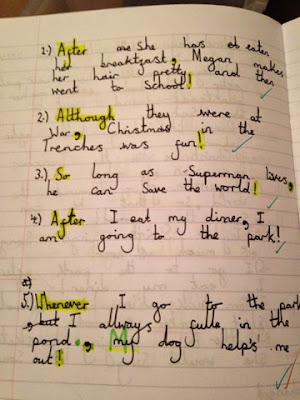 1.) After she has eaten
her breaktfast, Megan makes
her hair pretty and then
went to School!
2.) Although they were at
War, Christmas in the
Trenches was fun!
3.) So long as Superman lives,
he can save the world!
4.) After I eat my dinner, I
am going to the park!
5.) Whenever I go to the park
, I allways fulle in the
pond, my dog help's me
out!